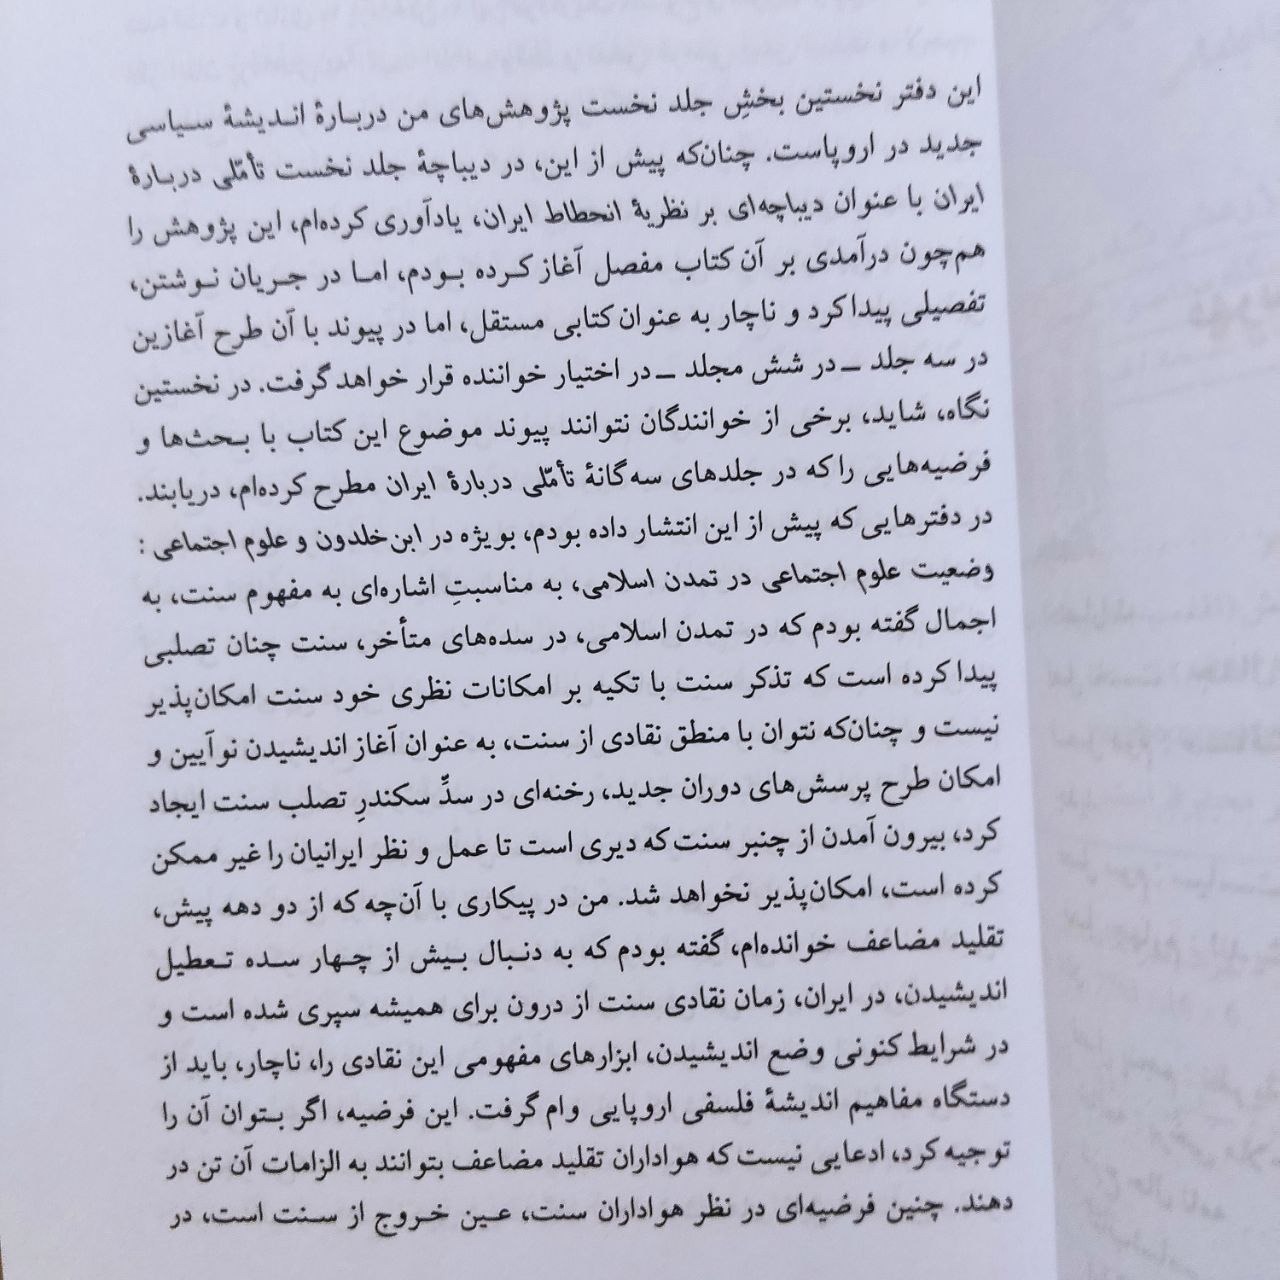 این دفتر نخستین بخشِ جلد نخست پژوهش‌های من دربارهٔ اندیشهٔ سیاسی
جدید در اروپاست. چنان‌که پیش از این، در دیباچهٔ جلد نخست تأمّلی دربارهٔ
ایران با عنوان دیباچه‌ای بر نظریهٔ انحطاط ایران، یادآوری کرده‌ام، این پژوهش را
هم‌چون درآمدی بر آن کتاب مفصل آغاز کرده بودم، اما در جریان نوشتن،
تفصیلی پیدا کرد و ناچار به عنوان کتابی مستقل، اما در پیوند با آن طرح آغازین
در سه جلد ــ در شش مجلد ــ در اختیار خواننده قرار خواهد گرفت. در نخستین
نگاه، شاید، برخی از خوانندگان نتوانند پیوند موضوع این کتاب با بحث‌ها و
فرضیه‌هایی را که در جلدهای سه‌گانهٔ تأمّلی دربارهٔ ایران مطرح کرده‌ام، دریابند.
در دفترهایی که پیش از این انتشار داده بودم، بویژه در ابن‌خلدون و علوم اجتماعی :
وضعیت علوم اجتماعی در تمدن اسلامی، به مناسبتِ اشاره‌ای به مفهوم سنت، به
اجمال گفته بودم که در تمدن اسلامی، در سده‌های متأخر، سنت چنان تصلبی
پیدا کرده است که تذکر سنت با تکیه بر امکانات نظری خود سنت امکان‌پذیر
نیست و چنان‌که نتوان با منطق نقادی از سنت، به عنوان آغاز اندیشیدن نوآیین و
امکان طرح پرسش‌های دوران جدید، رخنه‌ای در سدِّ سکندرِ تصلب سنت ایجاد
کرد، بیرون آمدن از چنبر سنت که دیری است تا عمل و نظر ایرانیان را غیر ممکن
کرده است، امکان‌پذیر نخواهد شد. من در پیکاری با آن‌چه که از دو دهه پیش،
تقلید مضاعف خوانده‌ام، گفته بودم که به دنبال بیش از چهار سده تعطیل
اندیشیدن، در ایران، زمان نقادی سنت از درون برای همیشه سپری شده است و
در شرایط کنونی وضع اندیشیدن، ابزارهای مفهومی این نقادی را، ناچار، باید از
دستگاه مفاهیم اندیشهٔ فلسفی اروپایی وام گرفت. این فرضیه، اگر بتوان آن را
توجیه کرد، ادعایی نیست که هواداران تقلید مضاعف بتوانند به الزامات آن تن در
دهند. چنین فرضیه‌ای در نظر هواداران سنت، عین خروج از سنت است، در